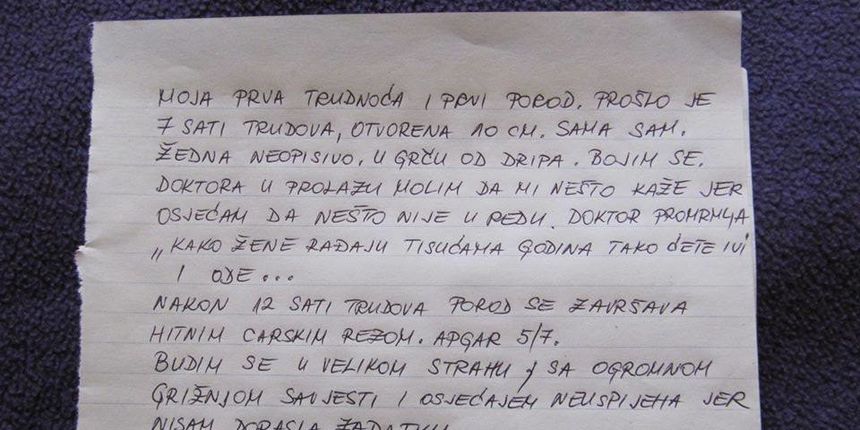 MOJA PRVA TRUDNOĆA I PRVI POROD. PROŠLO JE
7 SATI TRUDOVA, OTVORENA 10 CM. SAMA SAM.
ŽEDNA NEOPISIVO, U GRČU OD DRIPA. BOJIM SE.
DOKTORA U PROLAZU MOLIM DA MI NEŠTO KAŽE JER
OSJEĆAM DA NEŠTO NIJE U REDU. DOKTOR PROMRMLJA
„KAKO ŽENE RAĐAJU TISUĆAMA GODINA TAKO ĆETE I VI
I ODE...
NAKON 12 SATI TRUDOVA POROD SE ZAVRŠAVA
HITNIM CARSKIM REZOM. APGAR 5/7.
BUDIM SE U VELIKOM STRAHU, SA OGROMNOM
GRIŽNJOM SAVJESTI I OSJEĆAJEM NEUSPIJEHA JER
NISAM DORASLA ZADATKU